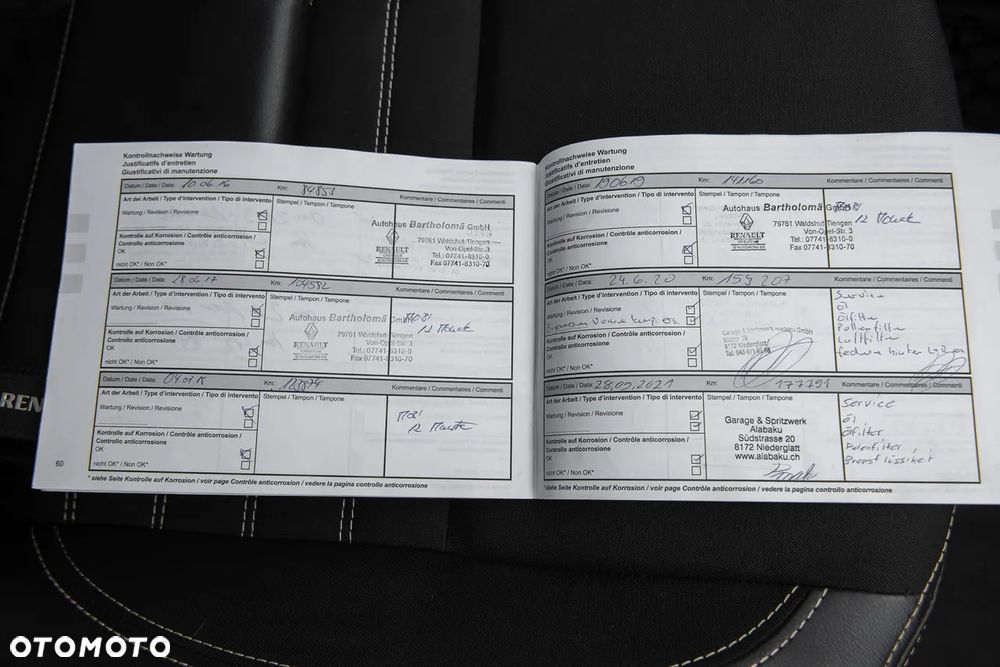 Kontrollnachweise Wartung
Justificatifs d'entretien
Giustificativi di manutenzione
Datum / Date / Data: 10.06.16 Km: 84853 Kommentare / Commentaires / Commenti
Art der Arbeit / Type d'intervention / Tipo di intervento Stempel / Tampon / Tampone
Wartung / Revision / Revisione
Autohaus Bartholomä GmbH
79761 Waldshut-Tiengen
Von-Opel-Str. 3
Tel.: 07741-8310-0
Fax 07741-8310-70
RENAULT
Kontrolle auf Korrosion / Contrôle anticorrosion /
Controllo anticorrosione
OK
nicht OK* / Non OK*
Datum / Date / Data: 28.06.17 Km: 104582 Kommentare / Commentaires / Commenti
Art der Arbeit / Type d'intervention / Tipo di intervento Stempel / Tampon / Tampone
Wartung / Revision / Revisione
Autohaus Bartholomä GmbH
79761 Waldshut-Tiengen
Von-Opel-Str. 3
Tel.: 07741-8310-0
Fax 07741-8310-70
RENAULT
12 Monate
Kontrolle auf Korrosion / Contrôle anticorrosion /
Controllo anticorrosione
OK
nicht OK* / Non OK*
Datum / Date / Data: Km: Kommentare / Commentaires / Commenti
Art der Arbeit / Type d'intervention / Tipo di intervento Stempel / Tampon / Tampone
Wartung / Revision / Revisione
12 Monate
Kontrolle auf Korrosion / Contrôle anticorrosion /
Controllo anticorrosione
OK
nicht OK* / Non OK*
60
* siehe Seite Kontrolle auf Korrosion / voir page Contrôle anticorrosion / vedere la pagina controllo anticorrosione
Kontrollnachweise Wartung
Justificatifs d'entretien
Giustificativi di manutenzione
Datum / Date / Data: 19.06.19 Km: 141160 Kommentare / Commentaires / Commenti
Art der Arbeit / Type d'intervention / Tipo di intervento Stempel / Tampon / Tampone
Wartung / Revision / Revisione
Autohaus Bartholomä GmbH
79761 Waldshut-Tiengen
Von-Opel-Str. 3
Tel.: 07741-8310-0
Fax 07741-8310-70
RENAULT
12 Monate
Kontrolle auf Korrosion / Contrôle anticorrosion /
Controllo anticorrosione
OK
nicht OK* / Non OK*
Datum / Date / Data: 24.6.20 Km: 159 207 Kommentare / Commentaires / Commenti
Art der Arbeit / Type d'intervention / Tipo di intervento Stempel / Tampon / Tampone
Wartung / Revision / Revisione
Garage & Spritzwerk Alabaku GmbH
Südstr. 20
8172 Niederglatt
Service
öl
ölfilter
Pollenfilter
Luftfilter
Federn hinter
Kontrolle auf Korrosion / Contrôle anticorrosion /
Controllo anticorrosione
OK
nicht OK* / Non OK*
Datum / Date / Data: 28.09.2021 Km: 177791 Kommentare / Commentaires / Commenti
Art der Arbeit / Type d'intervention / Tipo di intervento Stempel / Tampon / Tampone
Wartung / Revision / Revisione
Garage & Spritzwerk
Alabaku
Südstrasse 20
8172 Niederglatt
www.alabaku.ch
Service
öl
ölfilter
Polenfilter
Bremsflüssikeit
Kontrolle auf Korrosion / Contrôle anticorrosion /
Controllo anticorrosione
OK
nicht OK* / Non OK*
* siehe Seite Kontrolle auf Korrosion / voir page Contrôle anticorrosion / vedere la pagina controllo anticorrosione
REN
OTOMOTO